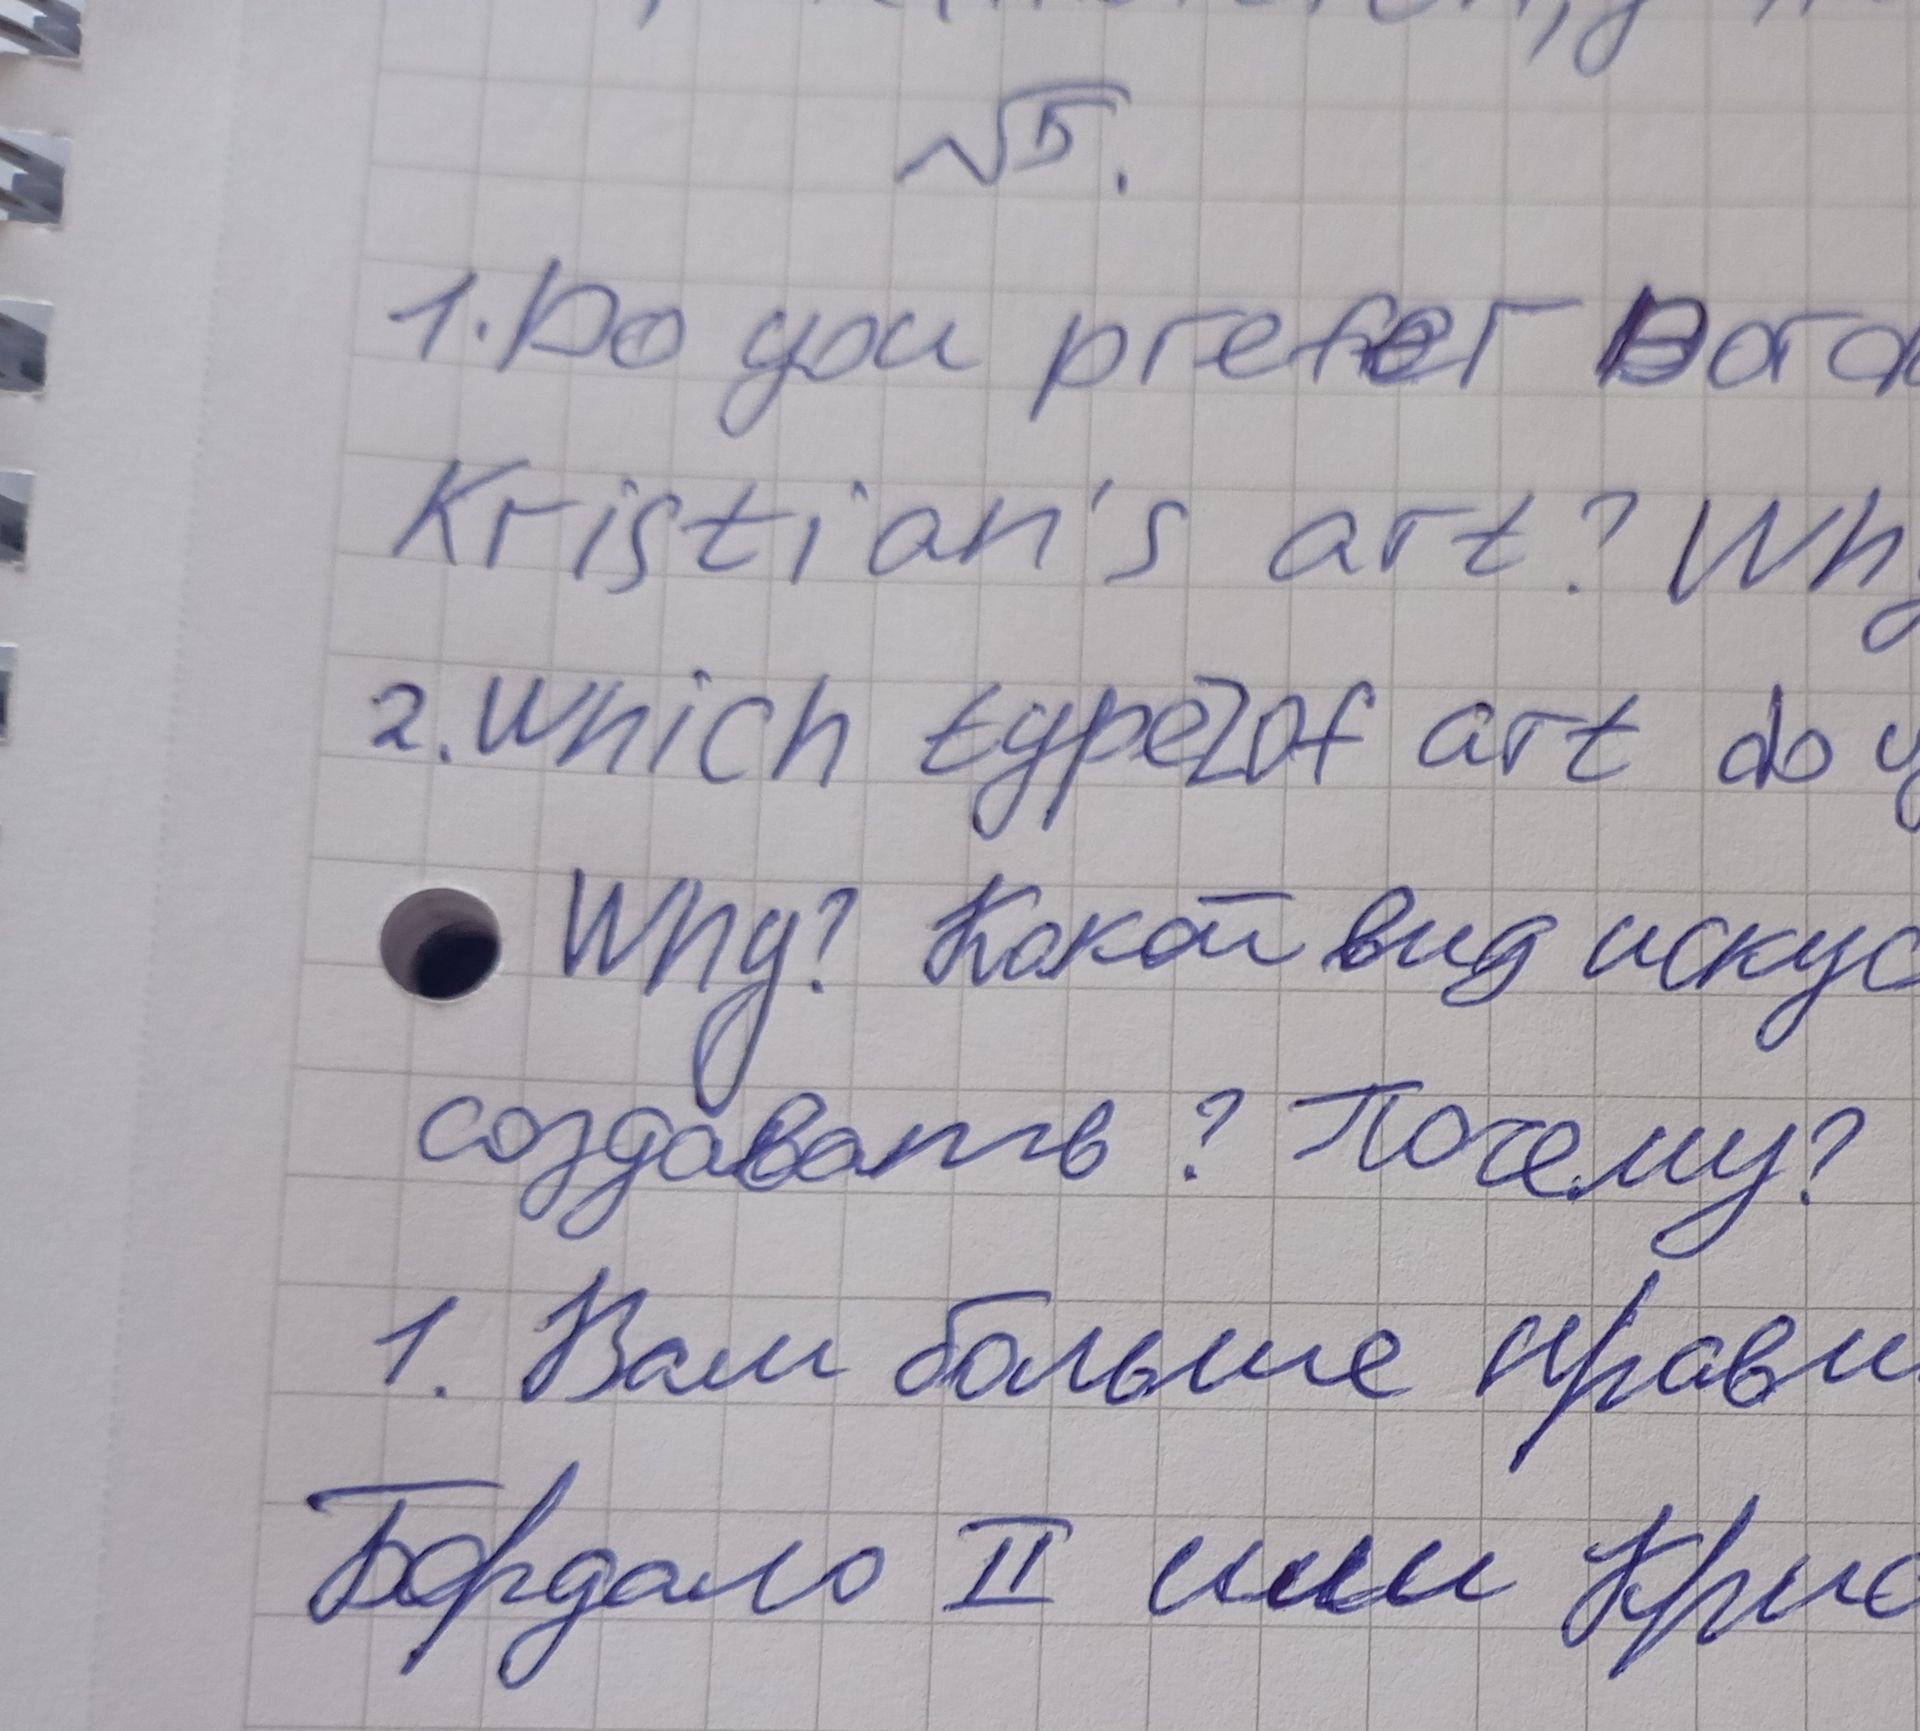 √5.
1. Do you prefer Bord
Kristian's art? Why
2. Which type of art do y
Why? Какой вид искус
создавать? Почему?
1. Вам больше нрави
Бордало II или Крис